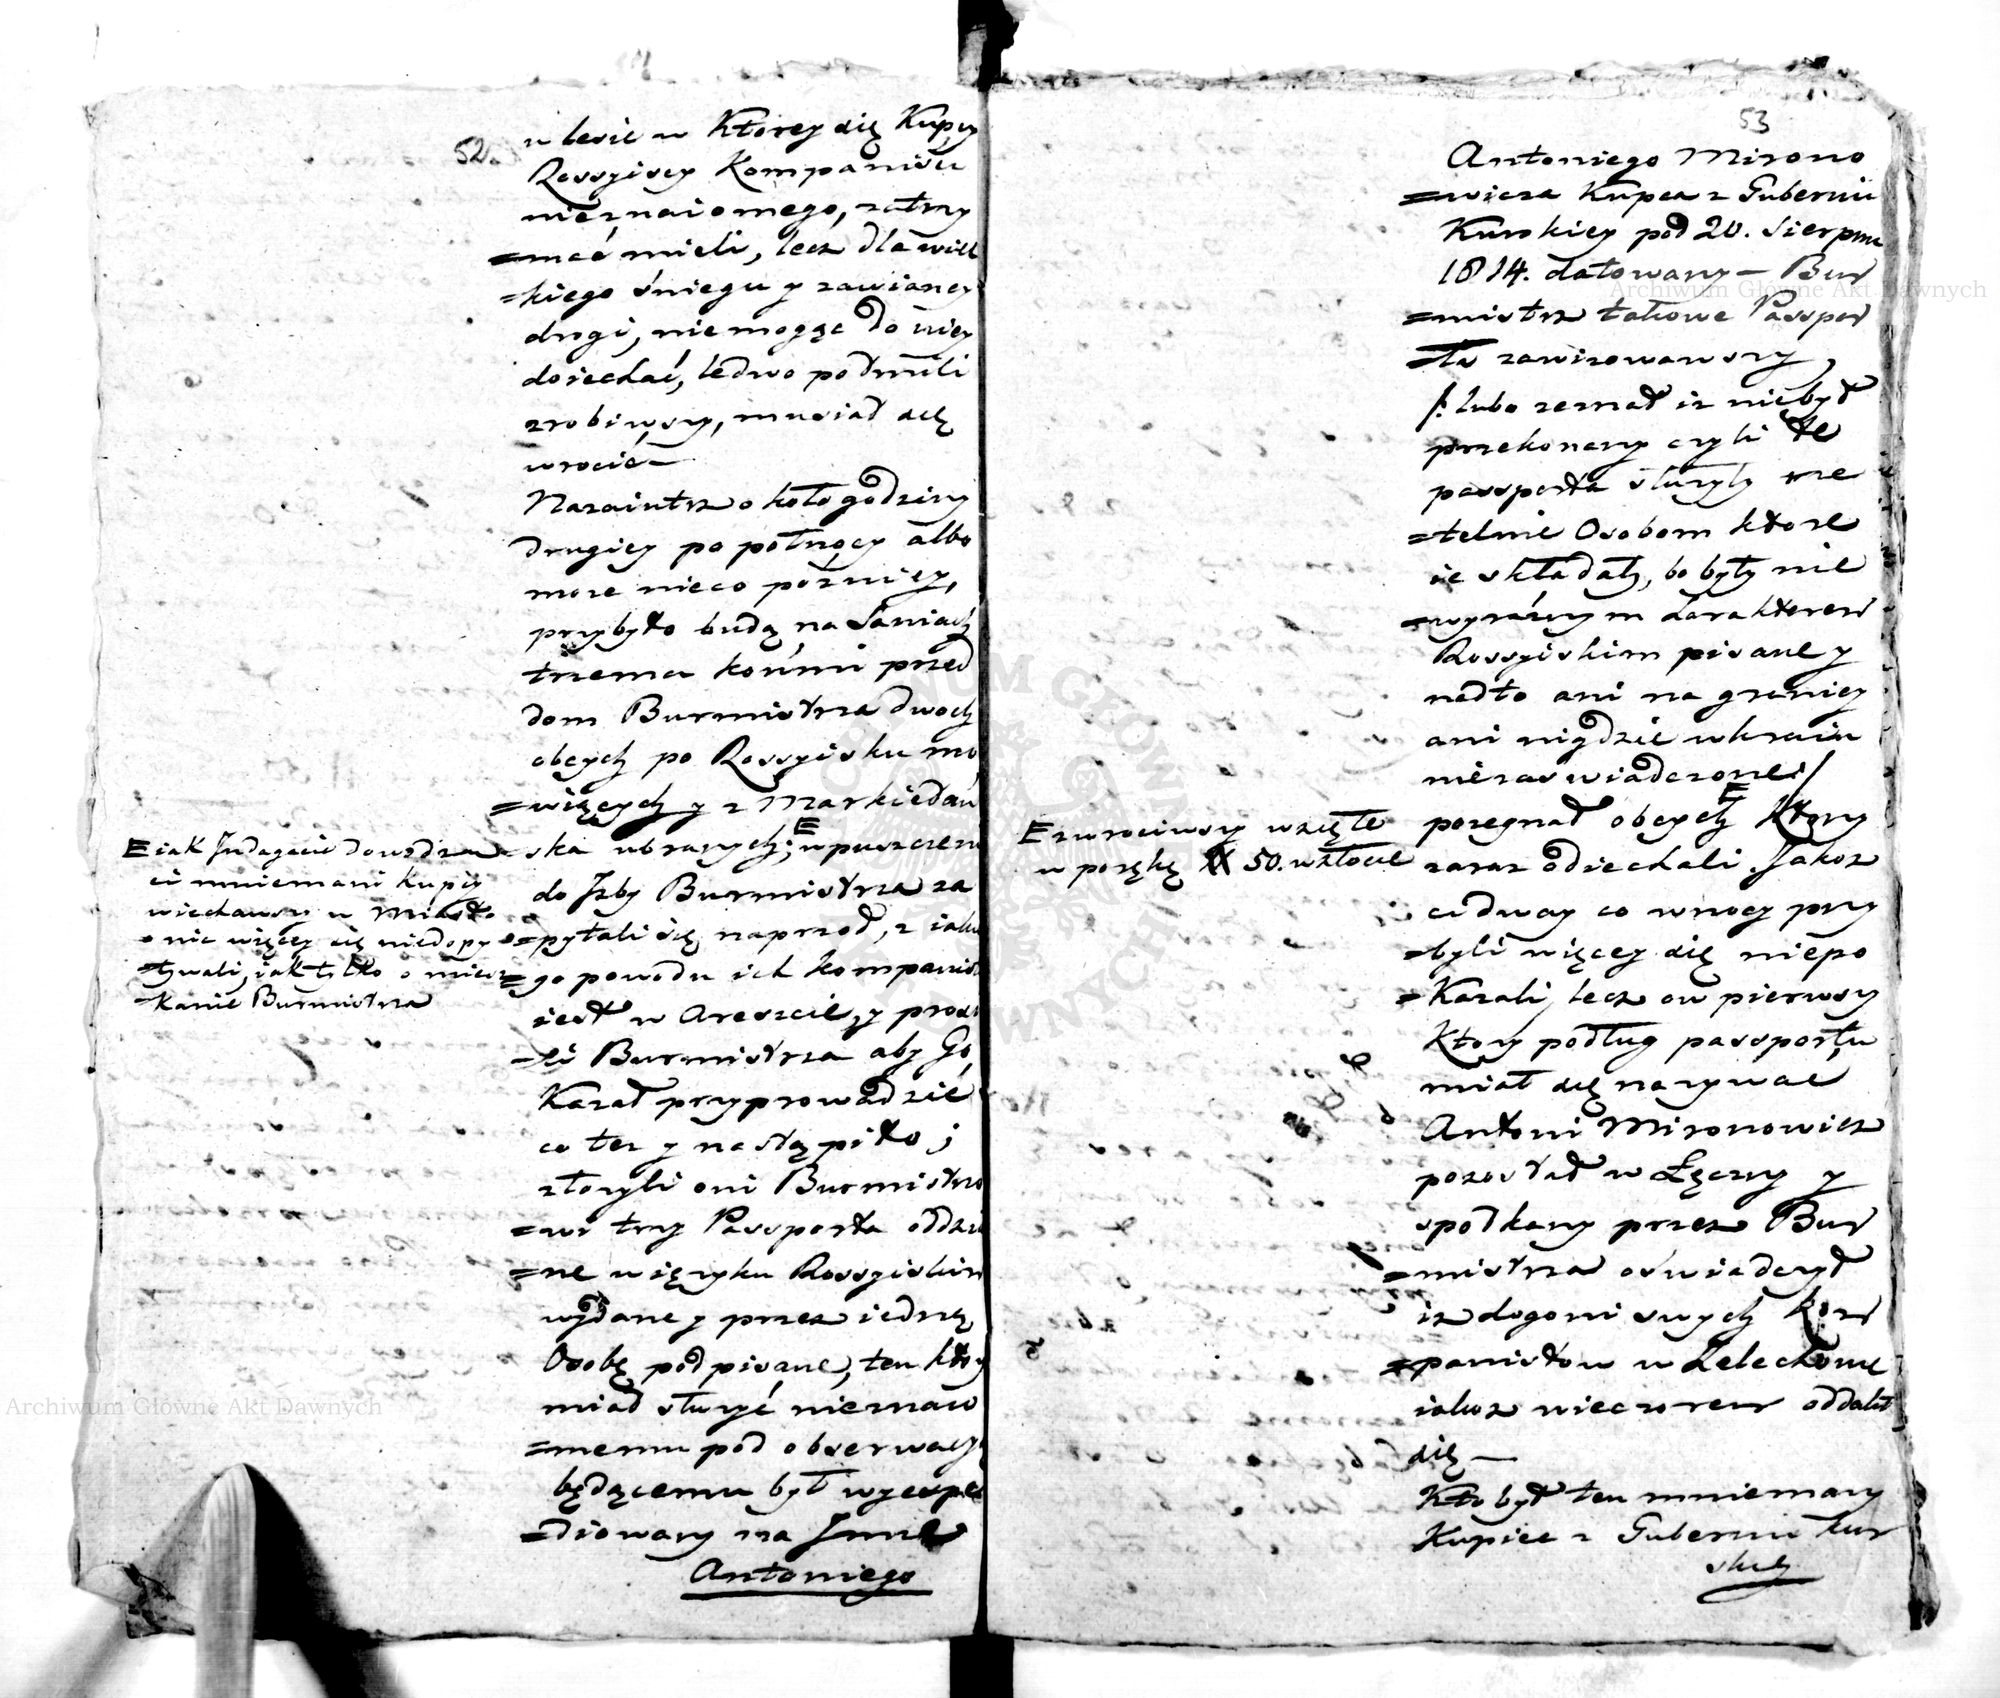 52.
w lesie w Ktorey się Kupcy
Rossyiscy Kompanistu
nieznaiomego, zatrzy
=mać mieli, lecz dla wiel
=kiego śniegu y zawianey
drogi, niemogąc do niey
doiechać, ledwo pół mili
zrobiwszy, musiał się
wrocić —
Nazaiutrz około godziny
drugiey po północy albo
może nieco pozniey,
przybyło budą na Saniach
trzema końmi przed
dom Burmistrza dwoch
obcych po Rossyisku mo
=wiących y z Markietań
ska ubranych; E wpuszczeni
do Jzby Burmistrza za
=pytali się naprzod, z iakie
=go powodu ich kompanist
iest w Areszcie, y prosi
=li Burmistrza aby Go
Kazał przyprowadzić
co też y nastąpiło;
złożyli oni Burmistrzo
=wi trzy Passporta oddziel
=ne w ięzyku Rossyiskim
wydane y przez iednę
Osobę podpisane, ten ktory
miał służyć nieznaio
=memu pod obserwacyą
będącemu był wyexpe
=diowany na Jmie
Antoniego
E iak Jndagacie dowodzą
ci mniemani kupcy
wiechawszy w Miasto
o nic więcey się niedopy
=tywali, iak tylko o miesz
=kanie Burmistrza
53
Antoniego Mirono
=wicza Kupca z Gubernii
Kurskiey pod 20. Sierpnia
1814. datowany — Bur
=mistrz takowe Passpor
=ta zawizowawszy,
/: lubo zeznał iż niebył
przekonany czyli te
passporta służyły rze
=telnie Osobom ktore
ie składały, bo były nie
=wyraźnym Karakterem
Rossyiskim pisane y
nadto ani na granicy
ani nigdzie w kraiu
niezaswiadczone :/
pożegnał obcych E ktorzy
zaraz odiechali. Jakoż
ci dway co w nocy przy
=byli więcey się niepo
=Kazali, lecz ow pierwszy
Ktory podług passportu
miał się nazywać
Antoni Mironowicz
pozostał w Łęczny y
spotkany przez Bur
=mistrza oświadczył
iż dogoni swych kom
=panistow w Żelechowie
iakoż wieczorem oddalił
się —
Kto był ten mniemany
Kupiec z Gubernii Kur
skiey
E zwrociwszy wzięte
w porękę # 50. w złocie
Archiwum Główne Akt Dawnych
Archiwum Główne Akt Dawnych